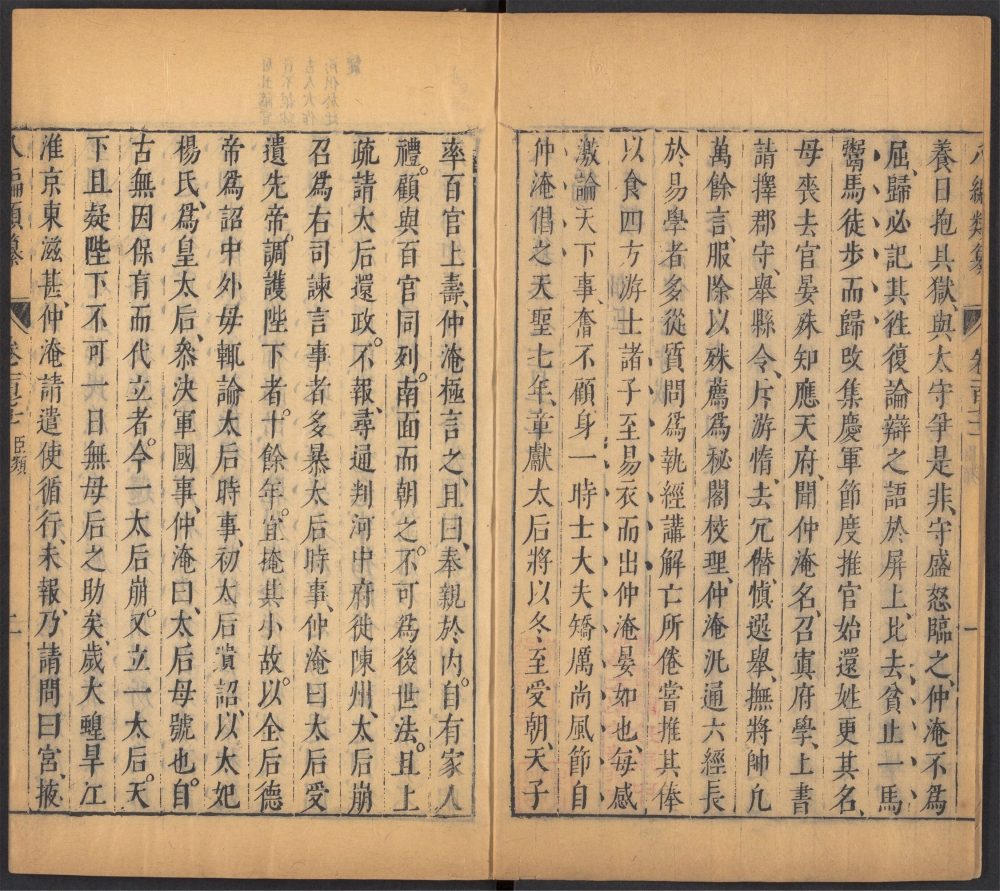 養日抱具獄與太守爭是非守盛怒臨之仲淹不爲
屈歸必記其徃復論辯之語於屏上比去貧止一馬
鬻馬徒步而歸改集慶軍節度推官始還姓更其名
母喪去官晏殊知應天府聞仲淹名召寘府學上書
請擇郡守舉縣令斥游惰去冗僭慎選舉撫將帥凡
萬餘言服除以殊薦爲秘閣校理仲淹汎通六經長
於易學者多從質問爲執經講解亡所倦嘗推其俸
以食四方游士諸子至易衣而出仲淹晏如也每感
激論天下事奮不顧身一時士大夫矯厲尚風節自
仲淹倡之天聖七年章獻太后將以冬至受朝天子
率百官上壽仲淹極言之且曰奉親於内自有家人
禮顧與百官同列南面而朝之不可爲後世法且上
疏請太后還政不報尋通判河中府徙陳州太后崩
召爲右司諫言事者多暴太后時事仲淹曰太后受
遺先帝調護陛下者十餘年宜掩其小故以全后德
帝爲詔中外毋輒論太后時事初太后遺詔以太妃
楊氏爲皇太后叅決軍國事仲淹曰太后母號也自
古無因保育而代立者今一太后崩又立一太后天
下且疑陛下不可一日無母后之助矣歲大蝗旱江
淮京東滋甚仲淹請遣使循行未報乃請問曰宮掖
八編類纂
臣類
二